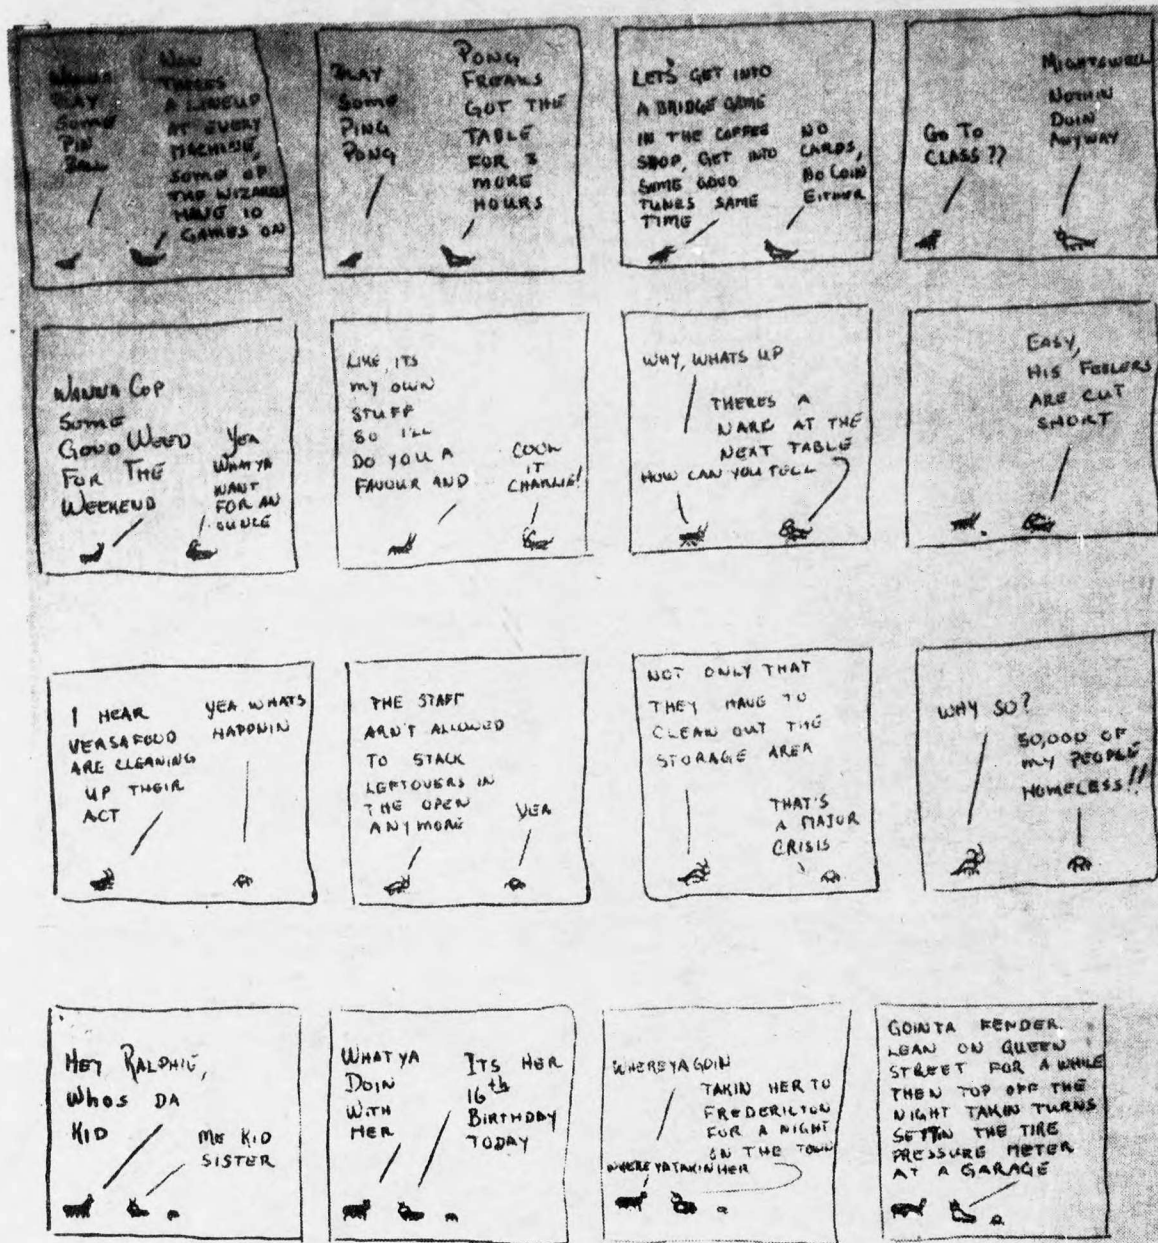 WANNA
PLAY
SOME
PIN
BALL
NAW
THERES
A LINEUP
AT EVERY
MACHINE,
SOME OF
THE WIZARDS
HAVE 10
GAMES ON
PLAY
SOME
PING
PONG
PONG
FREAKS
GOT THE
TABLE
FOR 3
MORE
HOURS
LET'S GET INTO
A BRIDGE GAME
IN THE COFFEE
SHOP, GET INTO
SOME GOOD
TUNES SAME
TIME
NO
CARDS,
NO COIN
EITHER
GO TO
CLASS??
MIGHTSWELL
NOTHIN
DOIN
ANYWAY
WANNA COP
SOME
GOOD WEED
FOR THE
WEEKEND
YEA
WHAT YA
WANT
FOR AN
OUNCE
LIKE, ITS
MY OWN
STUFF
SO I'LL
DO YOU A
FAVOUR AND
COOL
IT
CHARLIE!
WHY, WHATS UP
THERES A
NARC AT THE
NEXT TABLE
HOW CAN YOU TELL
EASY,
HIS FEELERS
ARE CUT
SHORT
I HEAR
VERSAFOOD
ARE CLEANING
UP THEIR
ACT
YEA WHATS
HAPPNIN
THE STAFF
ARN'T ALLOWED
TO STACK
LEFTOVERS IN
THE OPEN
ANYMORE
YEA
NOT ONLY THAT
THEY HAVE TO
CLEAN OUT THE
STORAGE AREA
THAT'S
A MAJOR
CRISIS
WHY SO?
50,000 OF
MY PEOPLE
HOMELESS!!
HEY RALPHIE,
WHOS DA
KID
ME KID
SISTER
WHAT YA
DOIN
WITH
HER
ITS HER
16th
BIRTHDAY
TODAY
WHERE YA GOIN
TAKIN HER TO
FREDERICTON
FOR A NIGHT
ON THE TOWN
WHERE YA TAKIN HER
GOINTA FENDER
LEAN ON QUEEN
STREET FOR A WHILE
THEN TOP OFF THE
NIGHT TAKIN TURNS
SETTIN THE TIRE
PRESSURE METER
AT A GARAGE